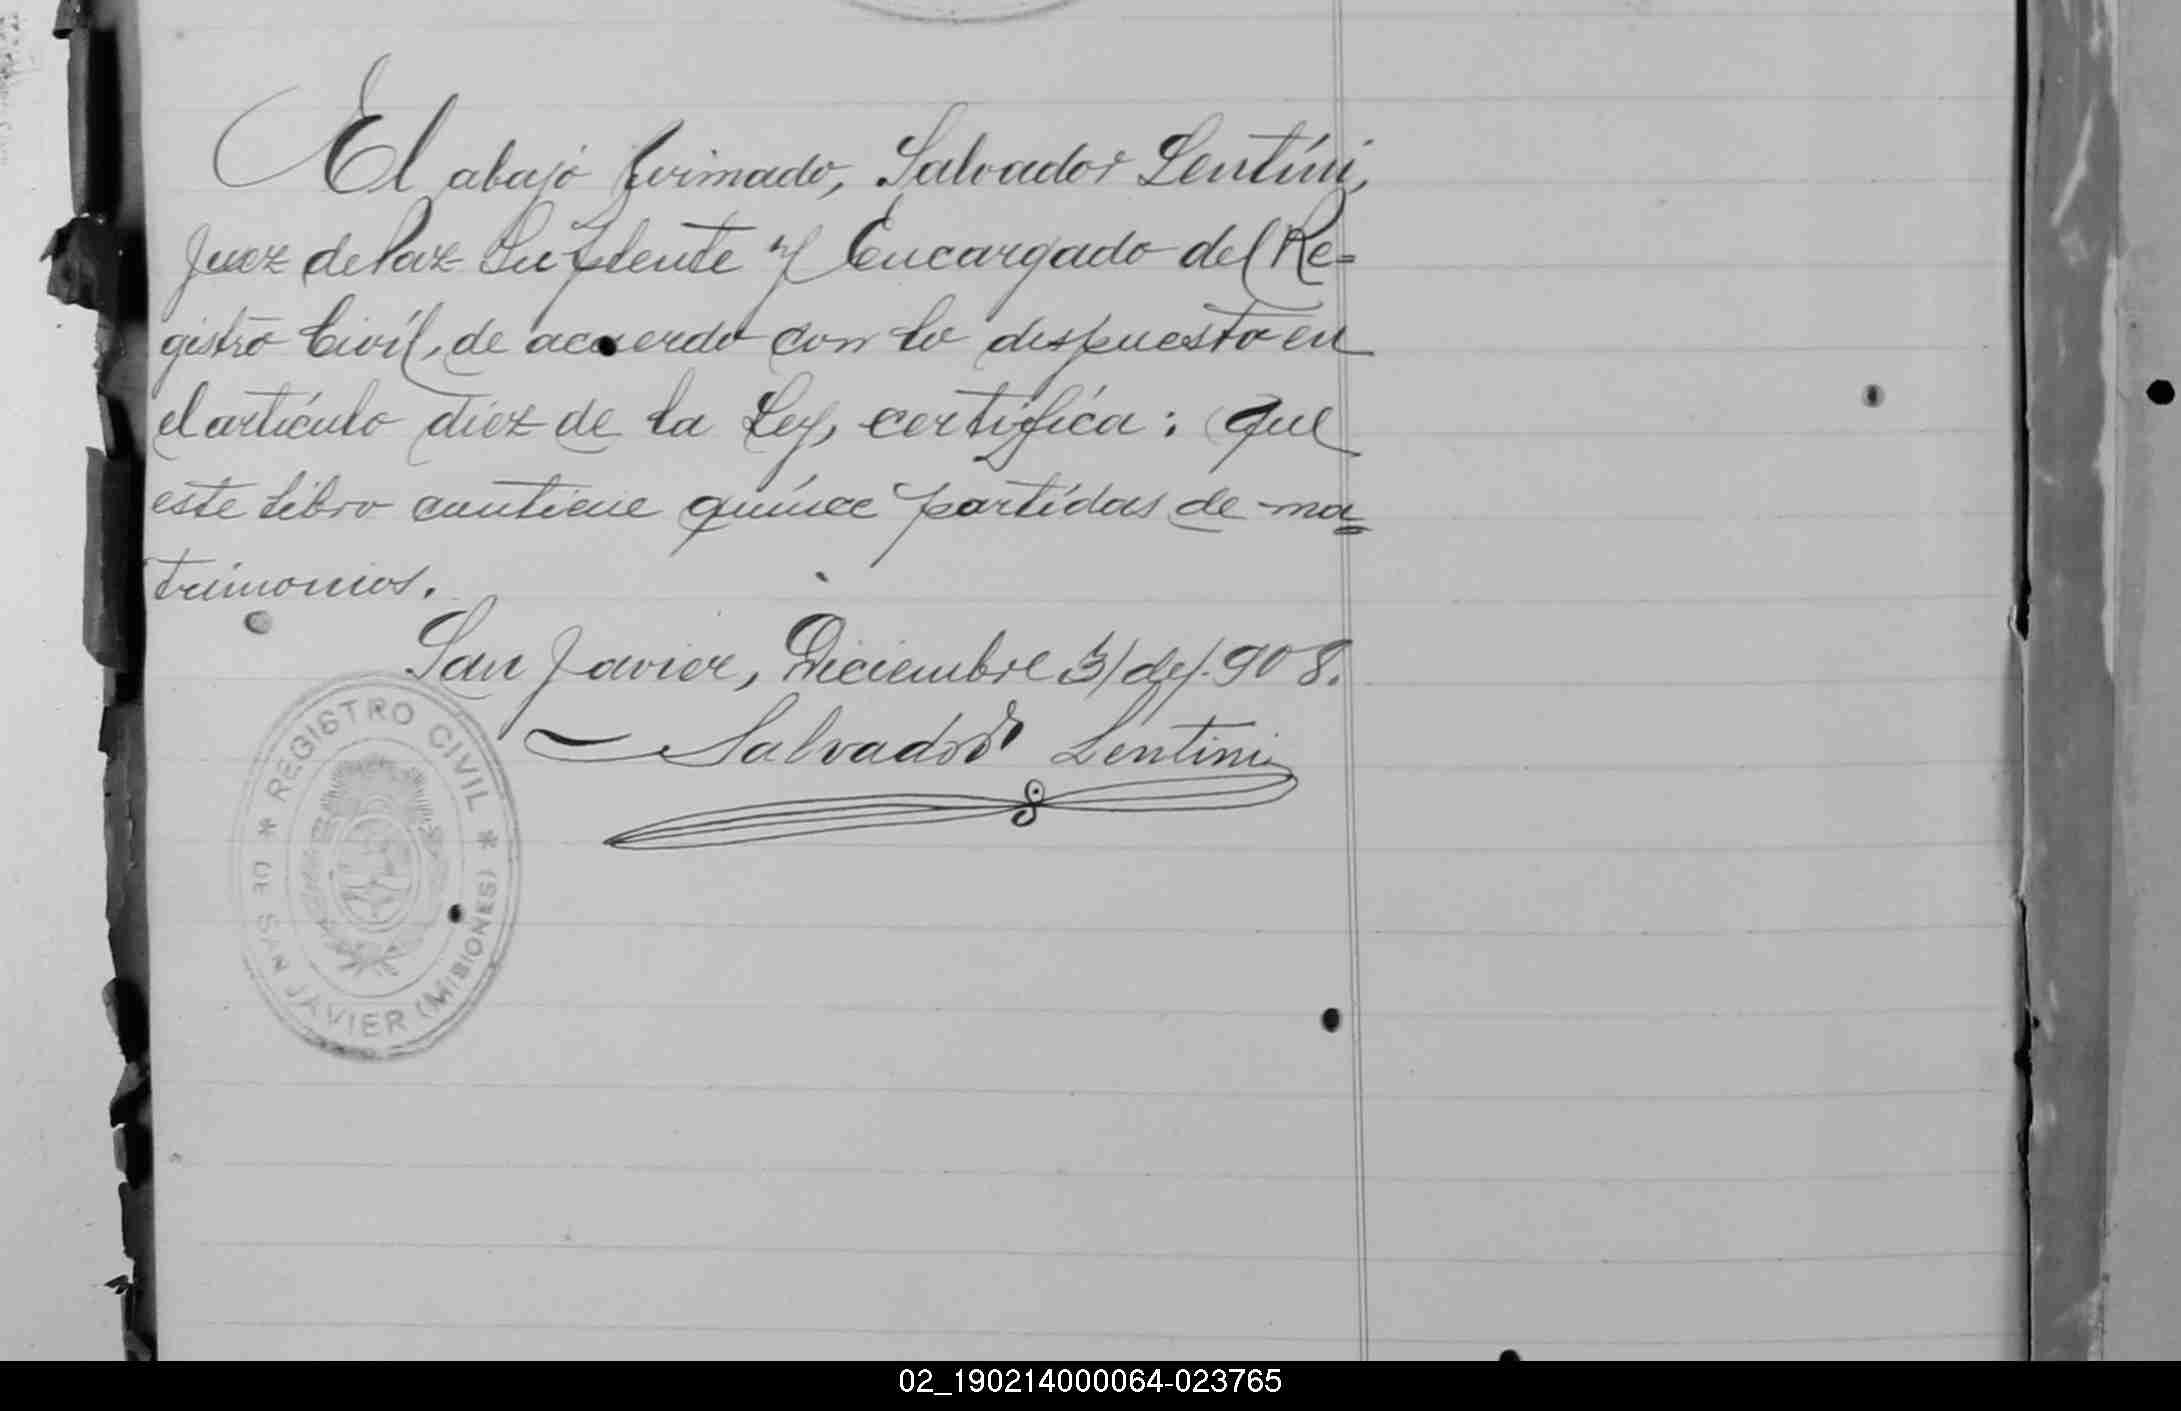 El abajo firmado, Salvador Lentíni,
Juez de Paz Suplente y Encargado del Re=
gistro Civíl, de acuerdo con lo dispuesto en
el artículo diez de la Ley, certifíca: que
este libro contiene quínce partídas de ma=
trimonios.
San Javier, Diciembre 31 de 1.908.
Salvador Lentini
* REGISTRO CIVIL *
DE SAN JAVIER (MISIONES)
02_190214000064-023765